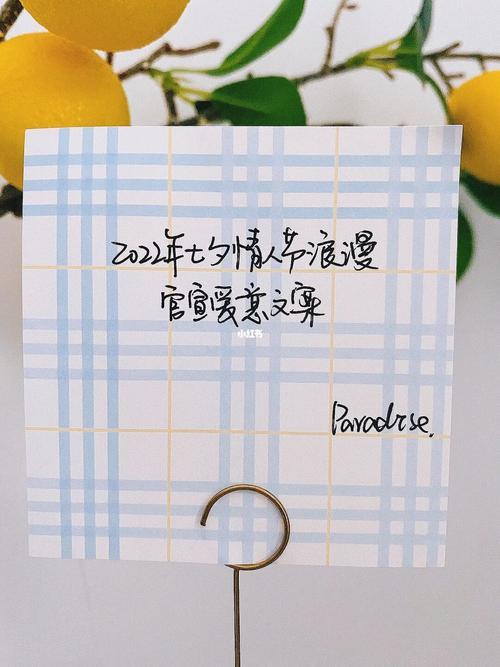 2022年七夕情人节浪漫
官宣爱意文案
小红书
Paradise.